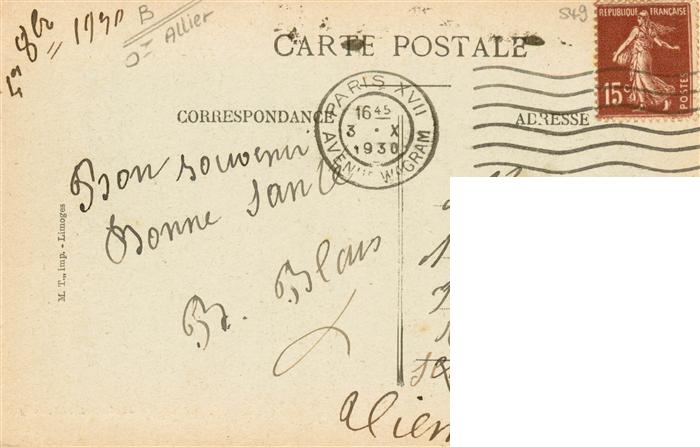 1er 8bre 1930
B
Allier
549
CARTE POSTALE
RÉPUBLIQUE FRANÇAISE
15c
POSTES
PARIS XVII
16 45
3 · X
1930
AVENUE WAGRAM
CORRESPONDANCE
ADRESSE
Bon souvenir
Bonne santé
B. Blais
M. T., imp. - Limoges